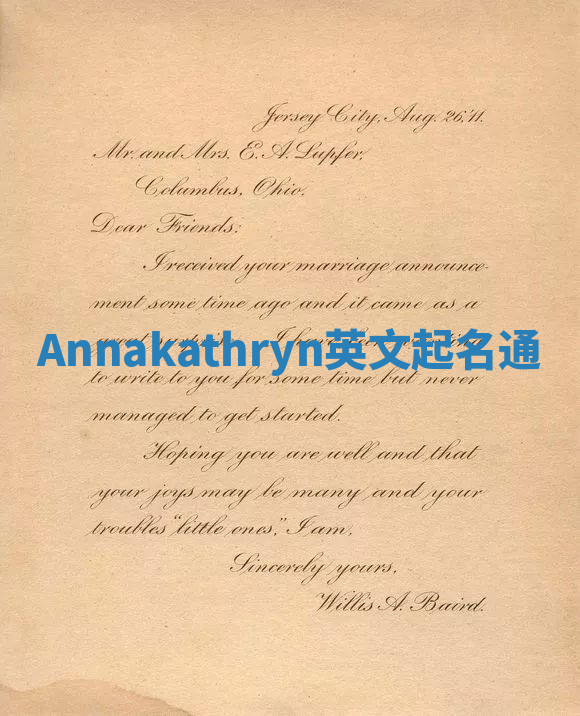 Jersey City, Aug. 26, '11.
Mr. and Mrs. E. A. Lupfer,
Columbus, Ohio.
Dear Friends:
I received your marriage announce-
ment some time ago and it came as a
great I have
Annakathryn英文起名通
to write to you for some time but never
managed to get started.
Hoping you are well and that
your joys may be many and your
troubles "little ones," I am,
Sincerely yours,
Willis A. Baird.